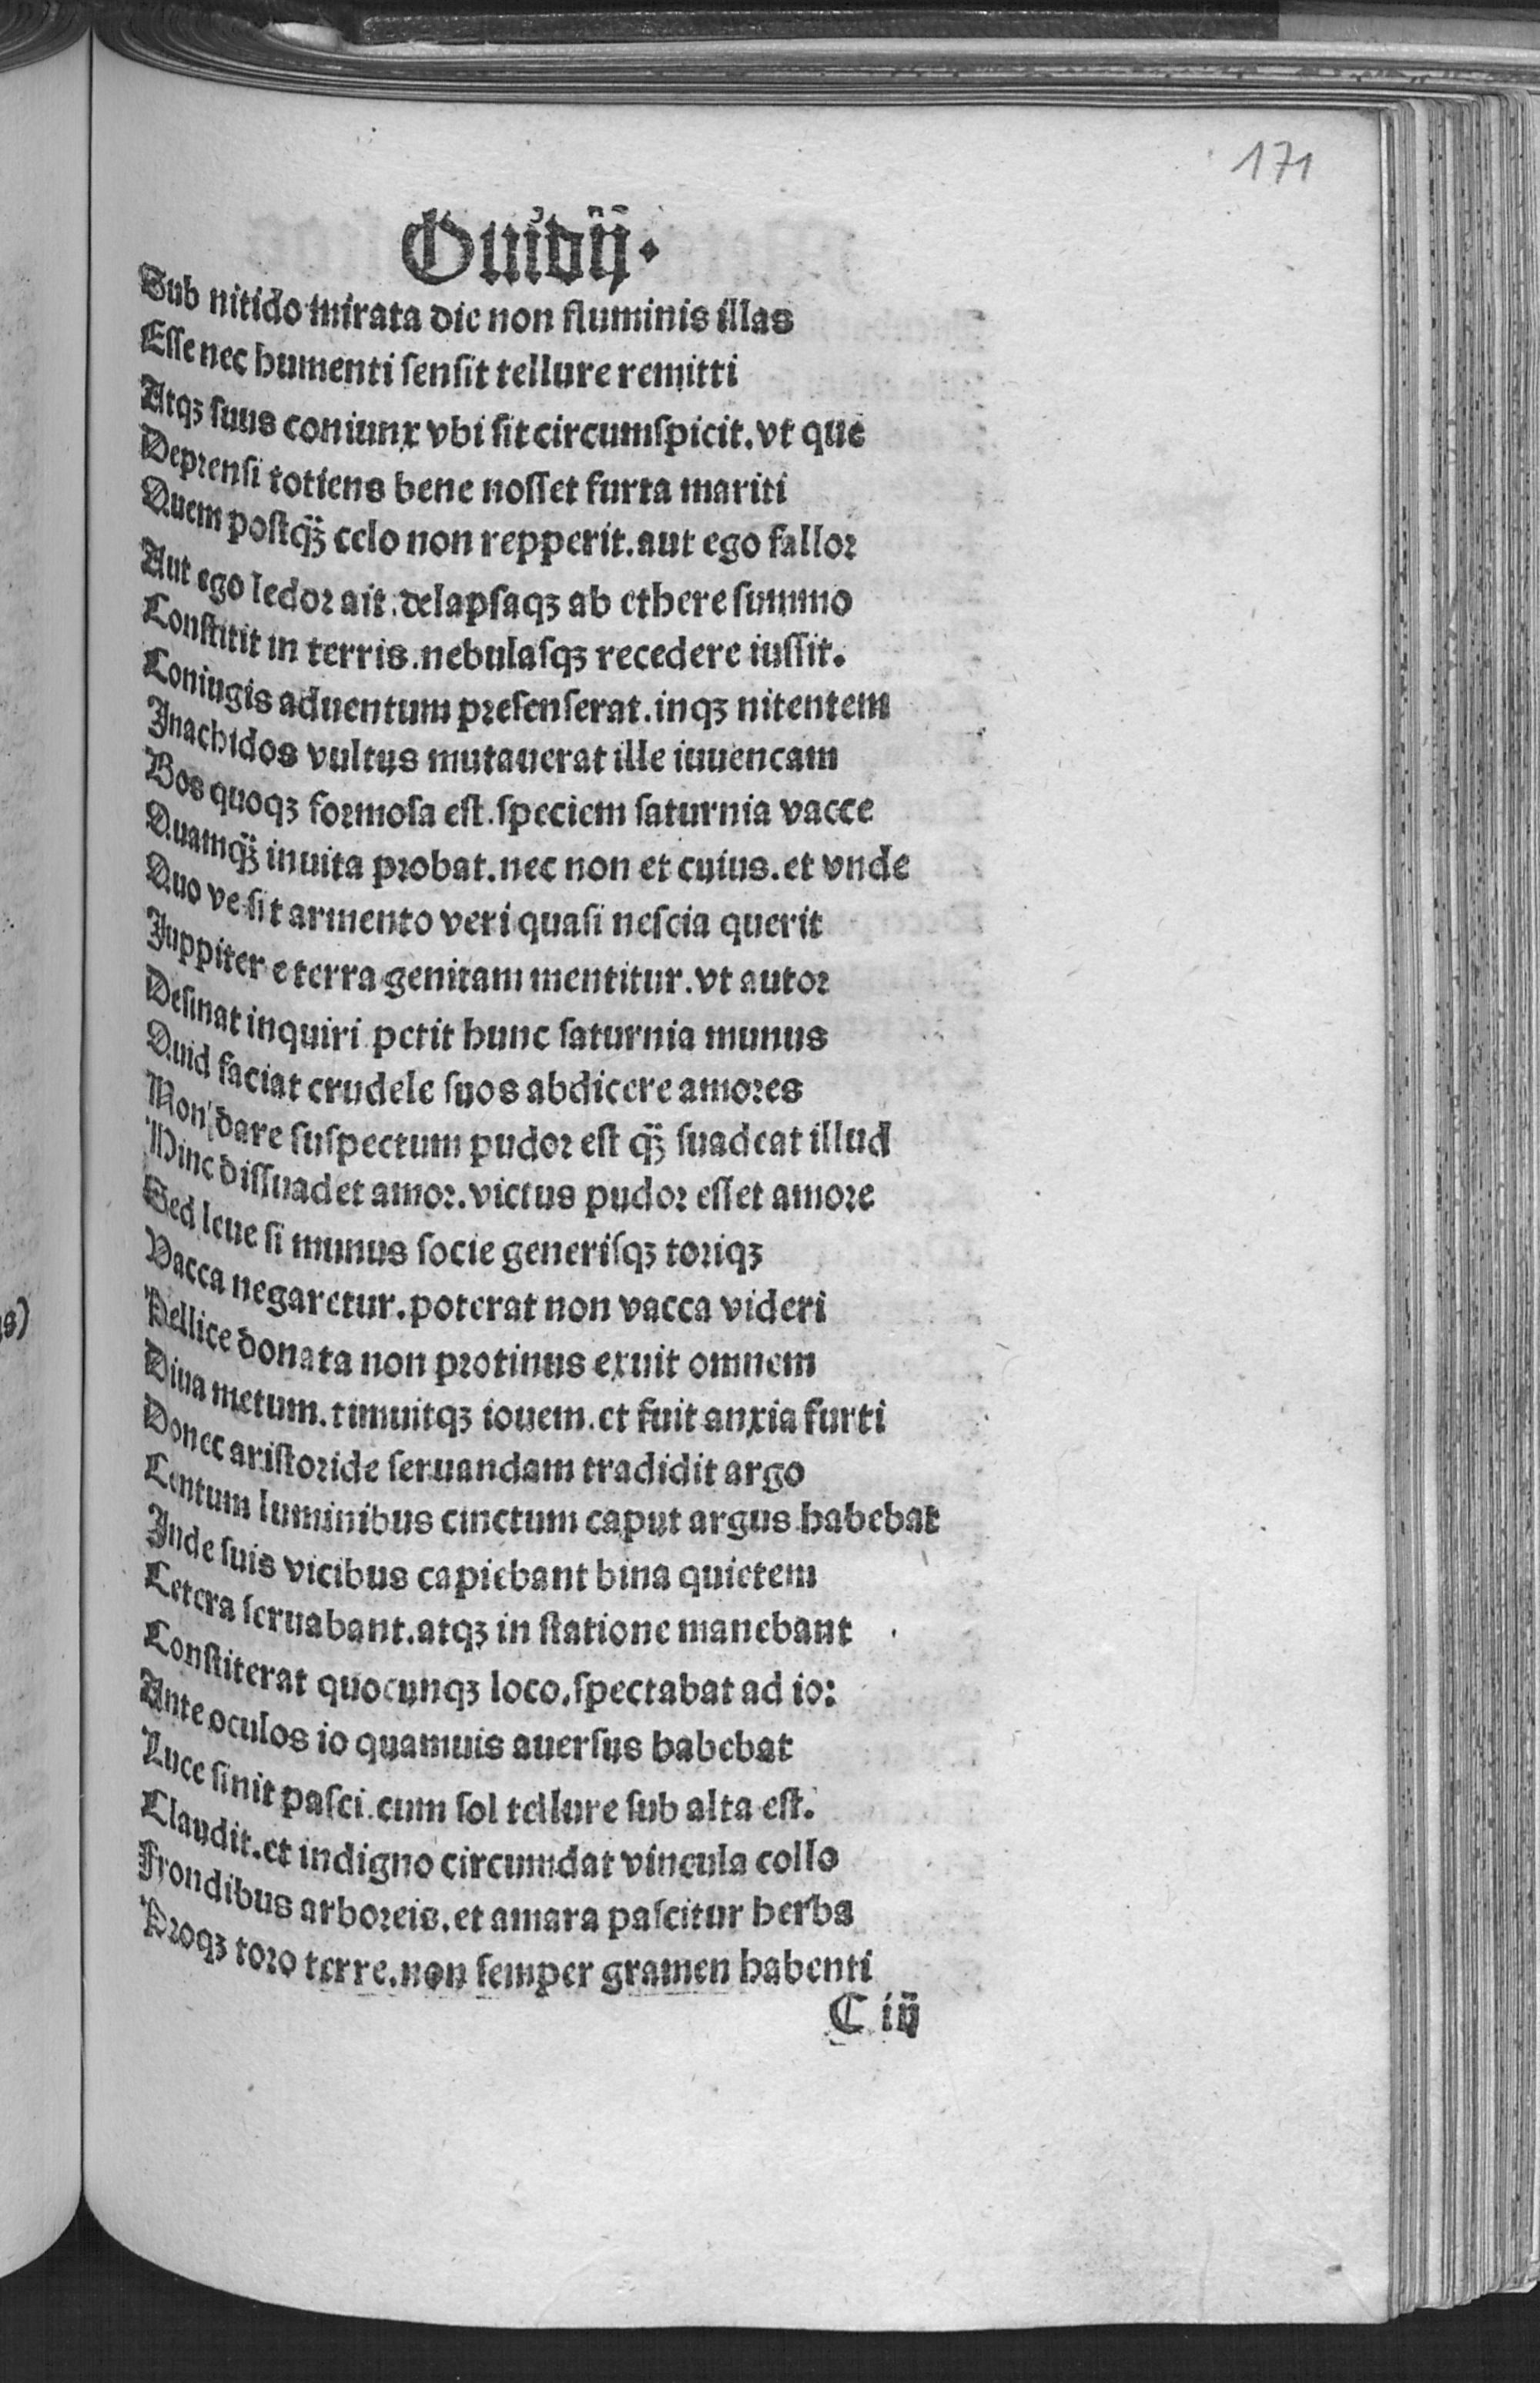 171
Ouidij.
Sub nitido mirata die non fluminis illas
Esse nec humenti sensit tellure remitti
Atqꝫ suus coniunx vbi sit circumspicit. vt que
Deprensi totiens bene nosset furta mariti
Quem postq̄ꝫ celo non repperit. aut ego fallor
Aut ego ledor ait. delapsaqꝫ ab ethere summo
Constitit in terris. nebulasqꝫ recedere iussit.
Coniugis aduentum presenserat. inqꝫ nitentem
Inachidos vultus mutauerat ille iuuencam
Bos quoqꝫ formosa est. speciem saturnia vacce
Quamq̄ꝫ inuita probat. nec non et cuius. et vnde
Quo ve sit armento veri quasi nescia querit
Juppiter e terra genitam mentitur. vt autor
Desinat inquiri petit hunc saturnia munus
Quid faciat crudele suos abdicere amores
Non dare suspectum pudor est q̄ꝫ suadeat illud
Hinc dissuadet amor. victus pudor esset amore
Sed leue si munus socie generisqꝫ toriqꝫ
Vacca negaretur. poterat non vacca videri
Pellice donata non protinus exuit omnem
Diua metum. timuitqꝫ iouem. et fuit anxia furti
Donec aristoride seruandam tradidit argo
Centum luminibus cinctum caput argus habebat
Inde suis vicibus capiebant bina quietem
Cetera seruabant. atqꝫ in statione manebant
Constiterat quocunqꝫ loco. spectabat ad io:
Ante oculos io quamuis auersus habebat
Luce sinit pasci. cum sol tellure sub alta est.
Claudit. et indigno circumdat vincula collo
Frondibus arboreis. et amara pascitur herba
Proqꝫ toro terre. non semper gramen habenti
C iij